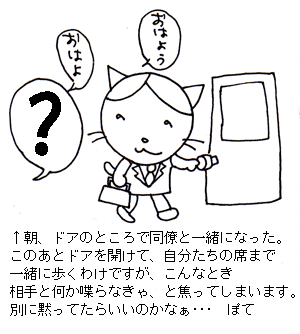 おはよう
おはよ
？
↑朝、ドアのところで同僚と一緒になった。
このあとドアを開けて、自分たちの席まで
一緒に歩くわけですが、こんなとき
相手と何か喋らなきゃ、と焦ってしまいます。
別に黙ってたらいいのかなぁ･･･　ぽて